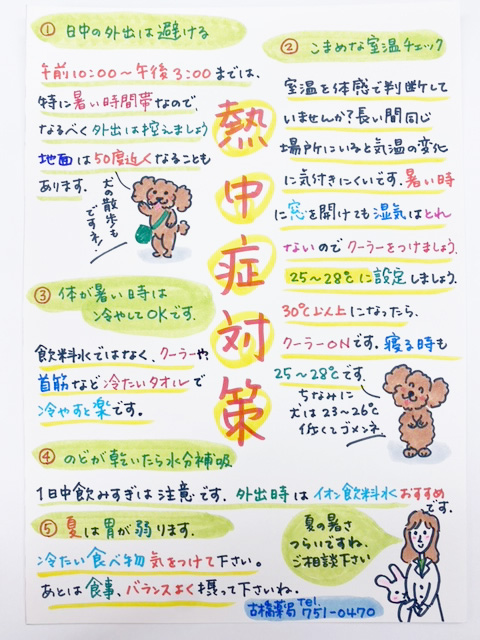 熱中症対策
① 日中の外出は避ける
午前10:00～午後3:00までは、
特に暑い時間帯なので、
なるべく外出は控えましょう
地面は50度近くなることも
あります。
犬の散歩も
ですネ!
② こまめな室温チェック
室温を体感で判断して
いませんか?長い間同じ
場所にいると気温の変化
に気付きにくいです。暑い時
に窓を開けても湿気はとれ
ないのでクーラーをつけましょう。
25～28℃に設定しましょう。
30℃以上になったら、
クーラーONです。寝る時も
25～28℃です。
ちなみに
犬は23～26℃
低くてゴメンネ
③ 体が暑い時は
冷やしてOKです。
飲料水ではなく、クーラーや、
首筋など冷たいタオルで
冷やすと楽です。
④ のどが乾いたら水分補給
1日中飲みすぎは注意です。外出時はイオン飲料水おすすめ
です。
⑤ 夏は胃が弱ります。
冷たい食べ物気をつけて下さい。
あとは食事、バランスよく摂って下さいね。
夏の暑さ
つらいですね、
ご相談下さい
古橋薬局 Tel. 751-0470